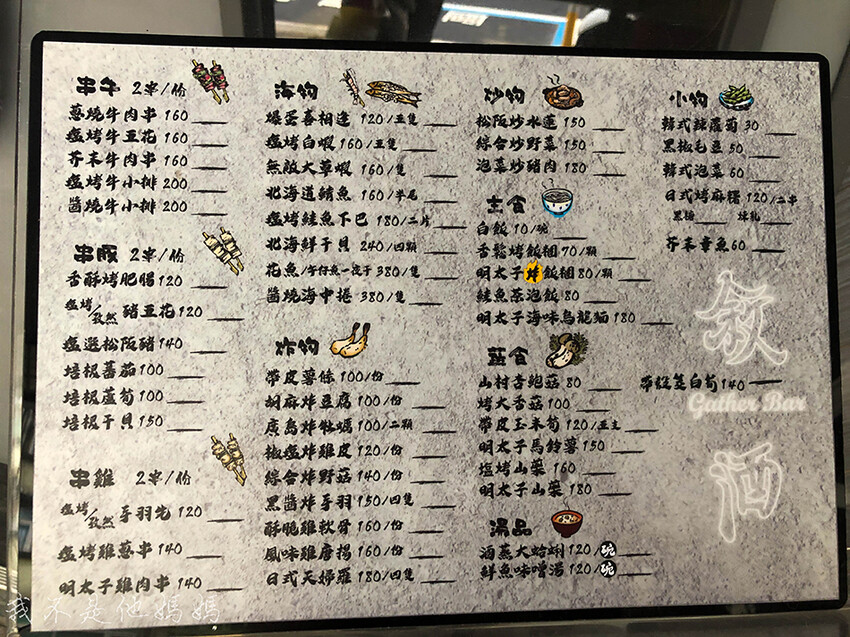 串牛 2串/份
蔥燒牛肉串 160
塩烤牛五花 160
芥末牛肉串 160
塩烤牛小排 200
醬燒牛小排 200
串豚 2串/份
香酥烤肥腸 120
塩烤/孜然 豬五花 120
塩選松阪豬 140
培根蕃茄 100
培根蘆筍 100
培根干貝 150
串雞 2串/份
塩烤/孜然 手羽先 120
塩烤雞蔥串 140
明太子雞肉串 140
海物
爆蛋喜相逢 120/五隻
塩烤白蝦 160/五隻
無敵大草蝦 160/隻
北海道鯖魚 160/半尾
塩烤鮭魚下巴 180/二片
北海鮮干貝 240/四顆
花魚/午仔魚一夜干 380/隻
醬燒海中捲 380/隻
炸物
帶皮薯條 100/份
胡麻炸豆腐 100/份
廣島炸牡蠣 100/二顆
椒塩炸雞皮 120/份
綜合炸野菇 140/份
黑醬炸手羽 150/四隻
酥脆雞軟骨 160/份
風味雞唐揚 160/份
日式天婦羅 180/四隻
炒物
松阪炒水蓮 150
綜合炒野菜 150
泡菜炒豬肉 180
主食
白飯 10/碗
香鬆烤飯糰 70/顆
明太子炸飯糰 80/顆
鮭魚茶泡飯 80
明太子海味烏龍麵 180
蔬食
山村杏鮑菇 80
烤大香菇 100
帶皮玉米筍 120/五支
明太子馬鈴薯 150
塩烤山藥 160
明太子山藥 180
帶殼茭白筍 140
湯品
酒蒸大蛤蜊 120/碗
鮮魚味噌湯 120/碗
小物
韓式辣蘿蔔 30
黑椒毛豆 50
韓式泡菜 60
日式烤麻糬 120/二串
黑糖 煉乳
芥末章魚 60
敘
Gather Bar
酒
我不是他媽媽